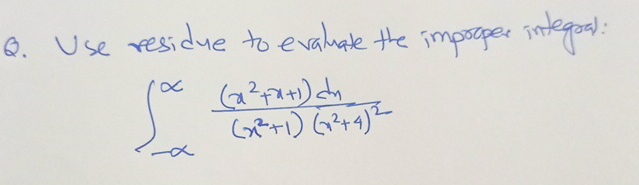 Q. Use residue to evaluate the improper integral:
∫_{-∞}^{∞} (x²+x+1) dx / (x²+1) (x²+4)²